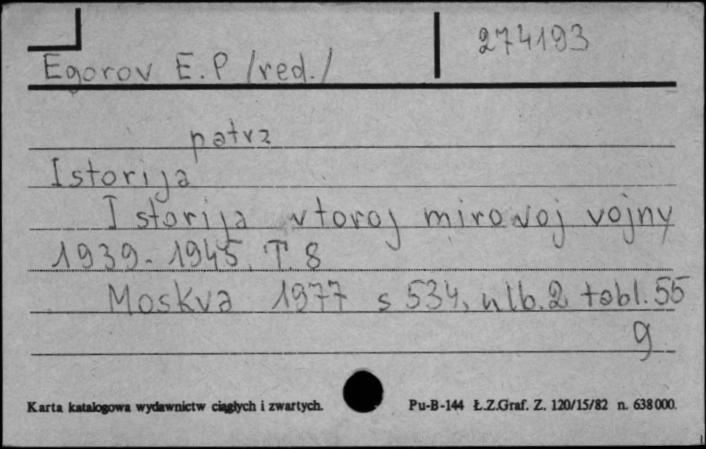 274193
Egorov E. P /red./
patrz
Istorija
Istorija vtoroj mirovoj vojny
1939-1945. T. 8
Moskva 1977 s 534, nlb. 2 tabl. 55
g
Karta katalogowa wydawnictw ciągłych i zwartych.
Pu-B-144 Ł.Z.Graf. Z. 120/15/82 n. 638000.